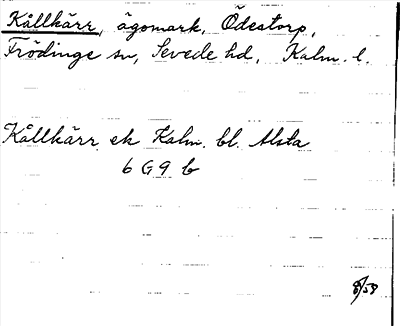 Kållkärr, ägomark, Ödestorp,
Frödinge sn, Sevede hd, Kalm. l.
Kållkärr ek Kalm. bl. Alsta
6 G 9 b
8/58